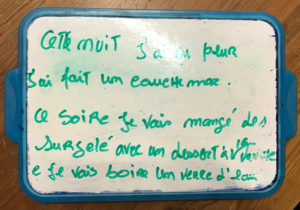 Cette nuit j'ai eu peur
j'ai fait un cauchemar.
ce soire je vais mangé des
surgelé avec un dessert à
e je vais boire un verre d'eau